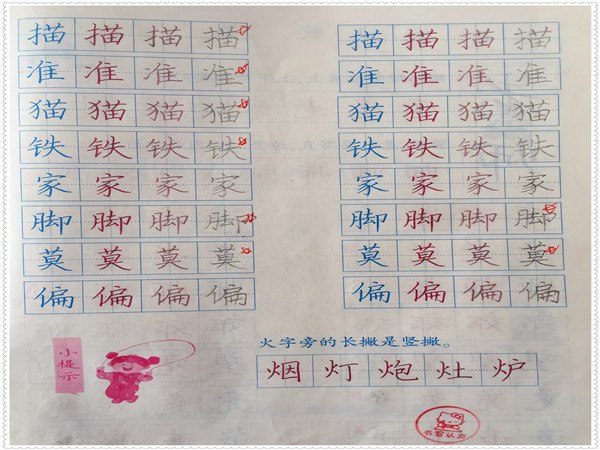 描描描描
准准准准
猫猫猫猫
铁铁铁铁
家家家家
脚脚脚脚
莫莫莫莫
偏偏偏偏
描描描描
准准准准
猫猫猫猫
铁铁铁铁
家家家家
脚脚脚脚
莫莫莫莫
偏偏偏偏
小提示
火字旁的长撇是竖撇。
烟灯炮灶炉
书写认真